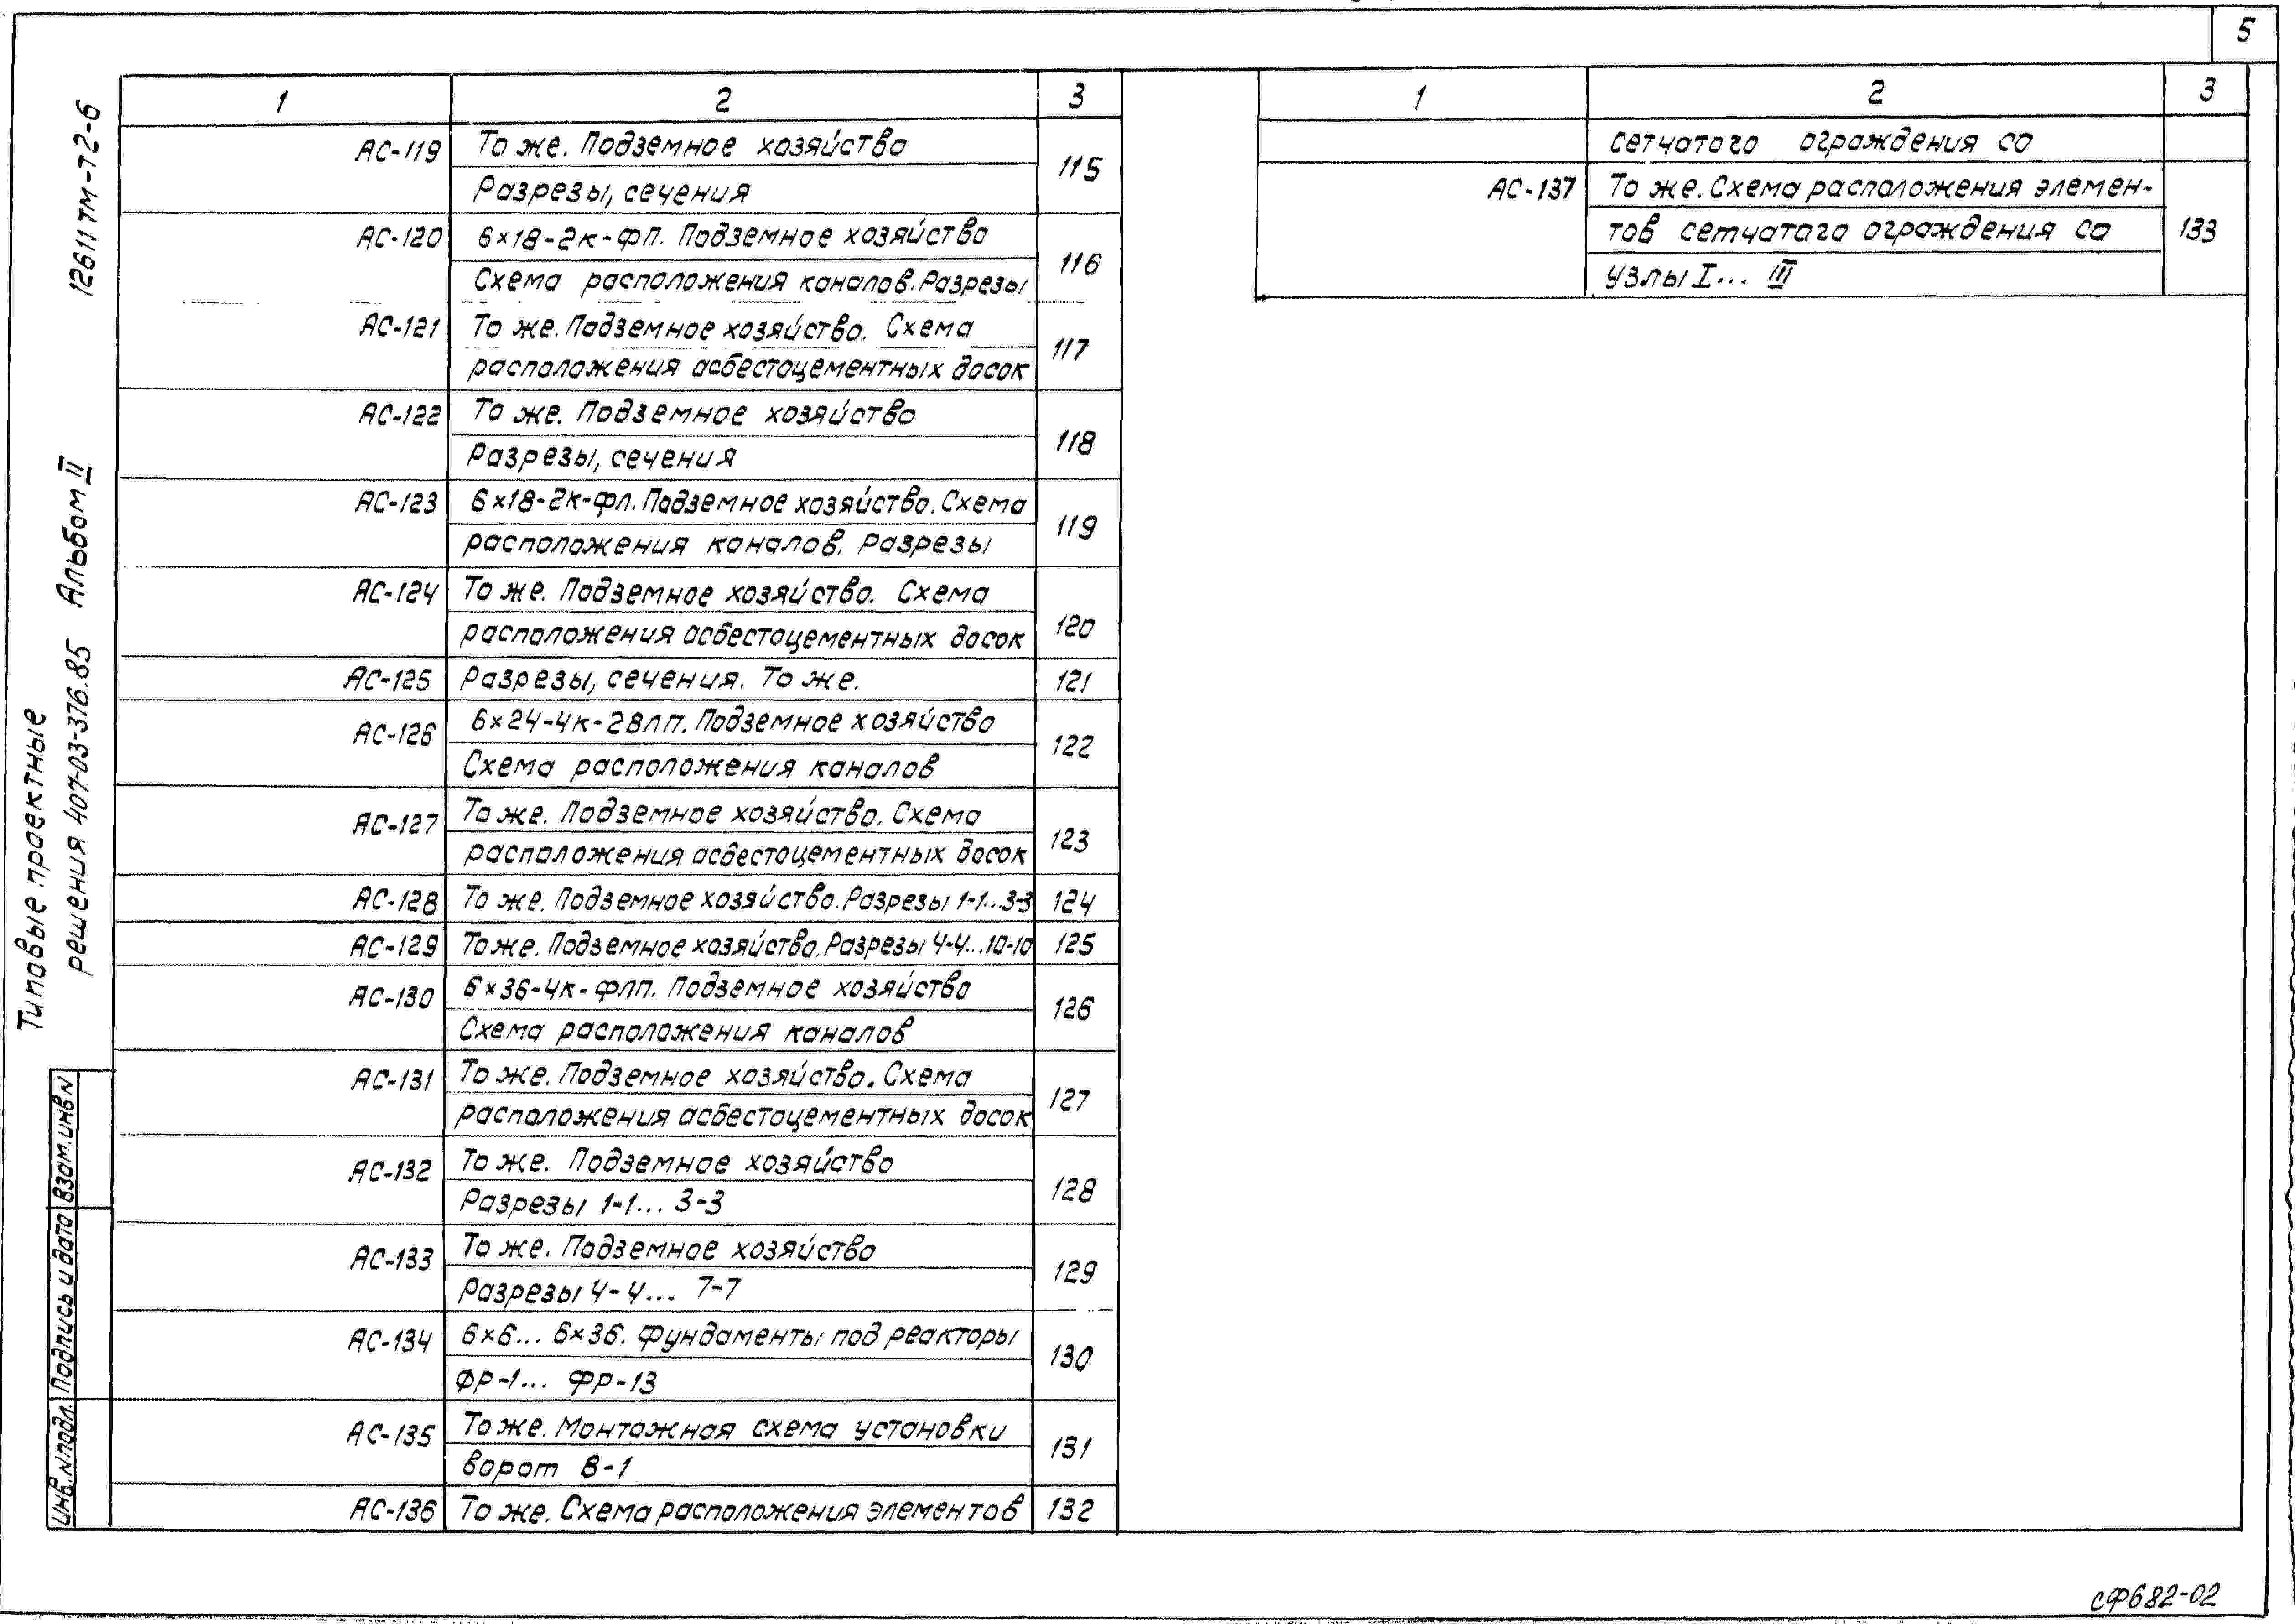 5
12611тм-т2-6
Альбом II
Типовые проектные
решения 407-03-376.85
1 2 3
АС-119 То же. Подземное хозяйство 115
Разрезы, сечения
АС-120 6×18-2к-фп. Подземное хозяйство 116
Схема расположения каналов. Разрезы
АС-121 То же. Подземное хозяйство. Схема 117
расположения асбестоцементных досок
АС-122 То же. Подземное хозяйство 118
Разрезы, сечения
АС-123 6×18-2к-фл. Подземное хозяйство. Схема 119
расположения каналов. Разрезы
АС-124 То же. Подземное хозяйство. Схема 120
расположения асбестоцементных досок
АС-125 Разрезы, сечения. То же. 121
АС-126 6×24-4к-28лп. Подземное хозяйство 122
Схема расположения каналов
АС-127 То же. Подземное хозяйство. Схема 123
расположения асбестоцементных досок
АС-128 То же. Подземное хозяйство. Разрезы 1-1...3-3 124
АС-129 То же. Подземное хозяйство. Разрезы 4-4...10-10 125
АС-130 6×36-4к-флп. Подземное хозяйство 126
Схема расположения каналов
АС-131 То же. Подземное хозяйство. Схема 127
расположения асбестоцементных досок
АС-132 То же. Подземное хозяйство 128
Разрезы 1-1... 3-3
АС-133 То же. Подземное хозяйство 129
Разрезы 4-4... 7-7
АС-134 6×6... 6×36. Фундаменты под реакторы 130
ФР-1... ФР-13
АС-135 То же. Монтажная схема установки 131
ворот В-1
АС-136 То же. Схема расположения элементов 132
1 2 3
сетчатого ограждения со
АС-137 То же. Схема расположения элемен- 133
тов сетчатого ограждения со
узлы I... III
Взам.инв N
Подпись и дата
Инв.N подл.
сф682-02